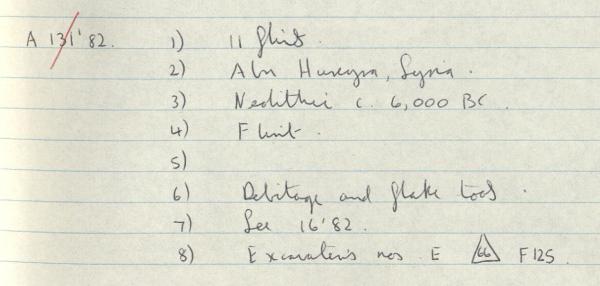 A 131'82. 1) 11 flints.
2) Abu Hureyra, Syria.
3) Neolithic c. 6,000 BC.
4) Flint.
5)
6) Debitage and flake tools.
7) See 16'82.
8) Excavator's nos E 66 F125